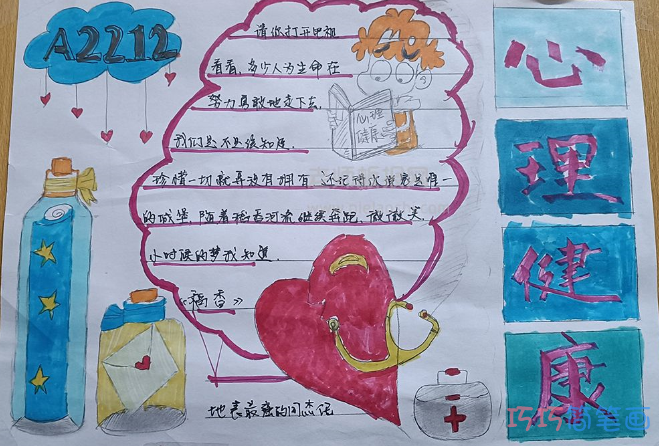 A2212
请你打开电视
看看,多少人为生命在
努力勇敢地走下去,
我们是不是该知足,
珍惜一切就算没有拥有 还记得你说家是唯一
的城堡,随着稻香河流继续奔跑,微微笑,
小时候的梦我知道
《稻香》
地表最强的同态侃
心理
健康
心
理
健
康
巧巧简笔画